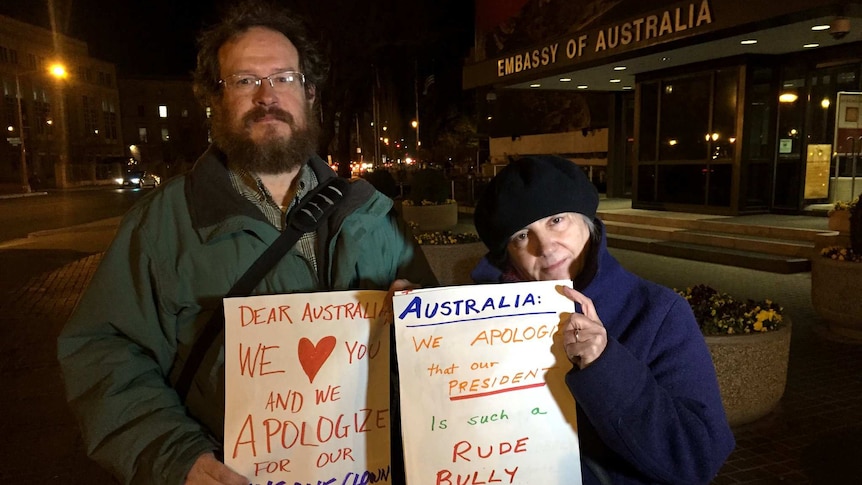 EMBASSY OF AUSTRALIA
DEAR AUSTRALIA
WE ♥ YOU
AND WE
APOLOGIZE
FOR OUR
CLOWN
AUSTRALIA:
WE APOLOGI
that our
PRESIDENT
Is such a
RUDE
BULLY